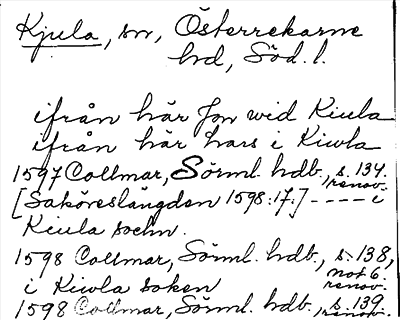 Kjula, sn, Österrekarne
hd, Söd. l.
ifrån här Jon wid Kiula
ifrån här hars i Kiwla
1597 Collmar, Sörml. hdb., s. 134.
renov.
[Saköreslängden 1598:17:] - - - - i
Kiula sochn.
1598 Collmar, Sörml. hdb., s. 138,
not 6.
i Kiwla soken renov.
1598 Collmar, Sörml. hdb., s. 139.
renov.